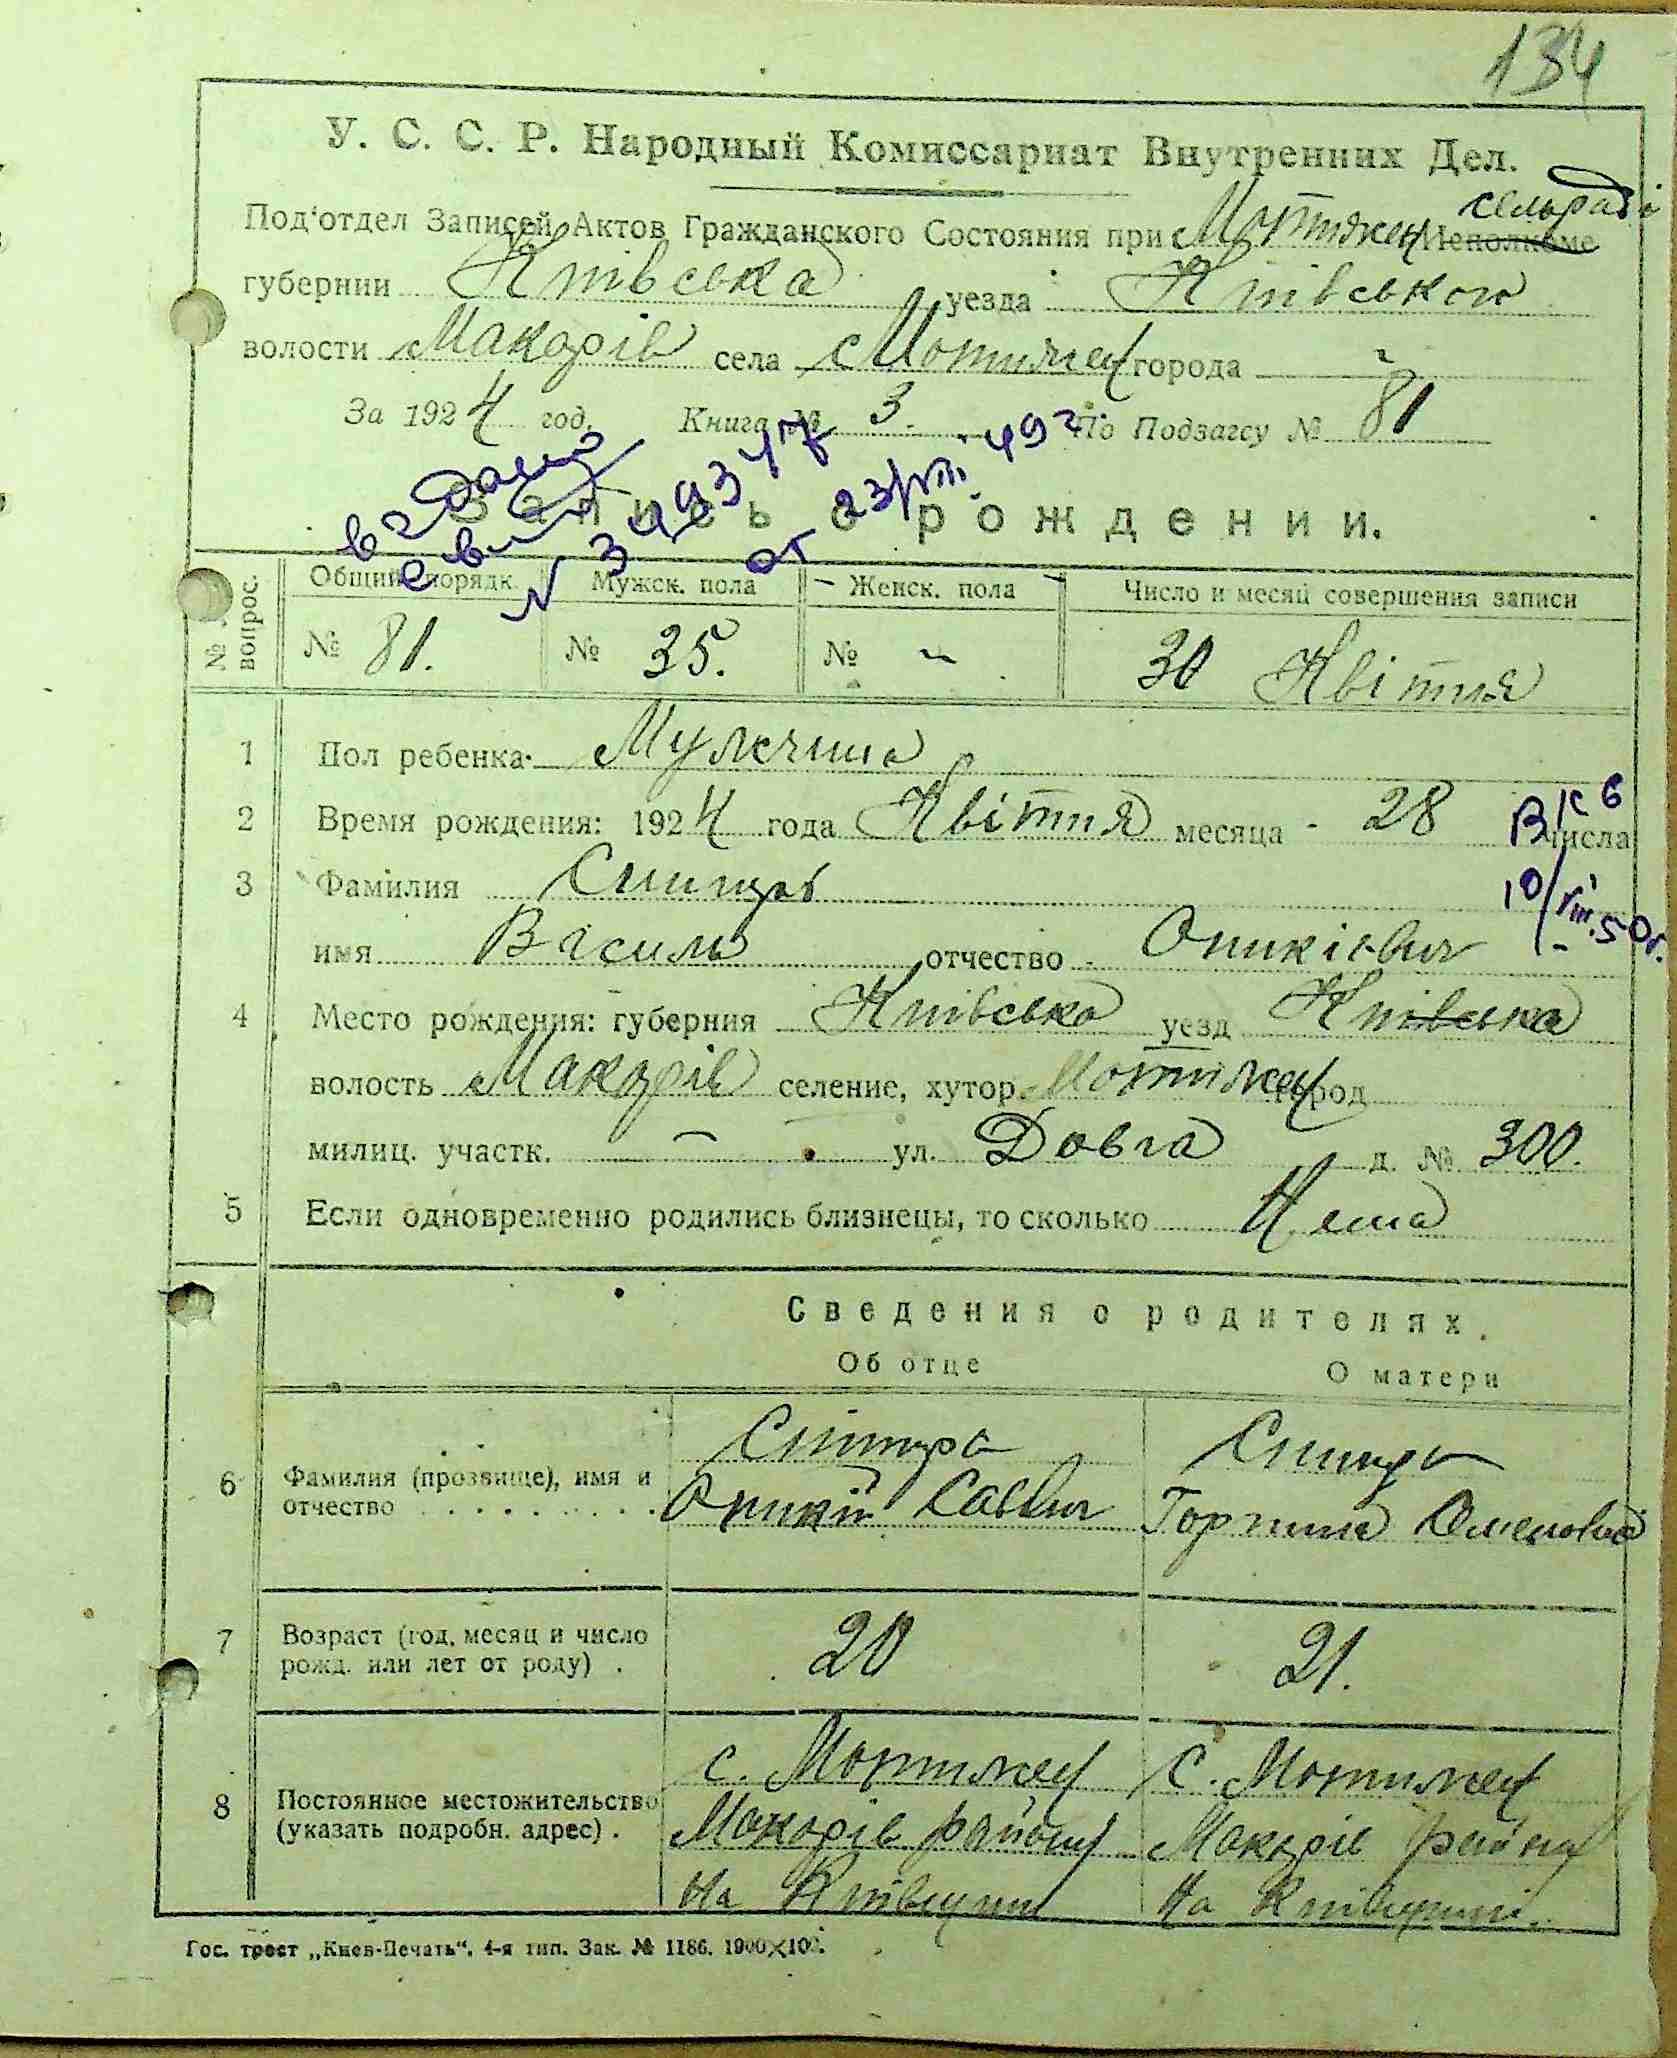 134
У. С. С. Р. Народный Комиссариат Внутренних Дел.
Под'отдел Записей Актов Гражданского Состояния при Мотижен Исполкоме сельраді
губернии Київська уезда Київського
волости Макарів села Мотижен города
За 1924 год. Книга № 3. По Подзагсу № 81
Запись о рождении.
№ 349347
от 23/VIII. 49 г.
№ вопрос. Общий порядк. Мужск. пола Женск. пола Число и месяц совершения записи
№ 81. № 35. № - 30 Квітня
1 Пол ребенка Мужчина
2 Время рождения: 1924 года Квітня месяца 28 числа
10/VIII.50г.
3 Фамилия
имя Василь отчество Оникієвич
4 Место рождения: губерния Київська уезд Київська
волость Макарів селение, хутор. Мотижен город
милиц. участк. - ул. Довга д. № 300.
5 Если одновременно родились близнецы, то сколько Нема
Сведения о родителях.
Об отце О матери
6 Фамилия (прозвище), имя и отчество
Оникій Савич
Горпина
7 Возраст (год, месяц и число рожд. или лет от роду) . 20 21.
8 Постоянное местожительство (указать подробн. адрес) .
с. Мотижен с. Мотижен
Макарів району Макарів району
на Київщині на Київщині.
Гос. трест „Киев-Печать“. 4-я тип. Зак. № 1186. 1900×100.